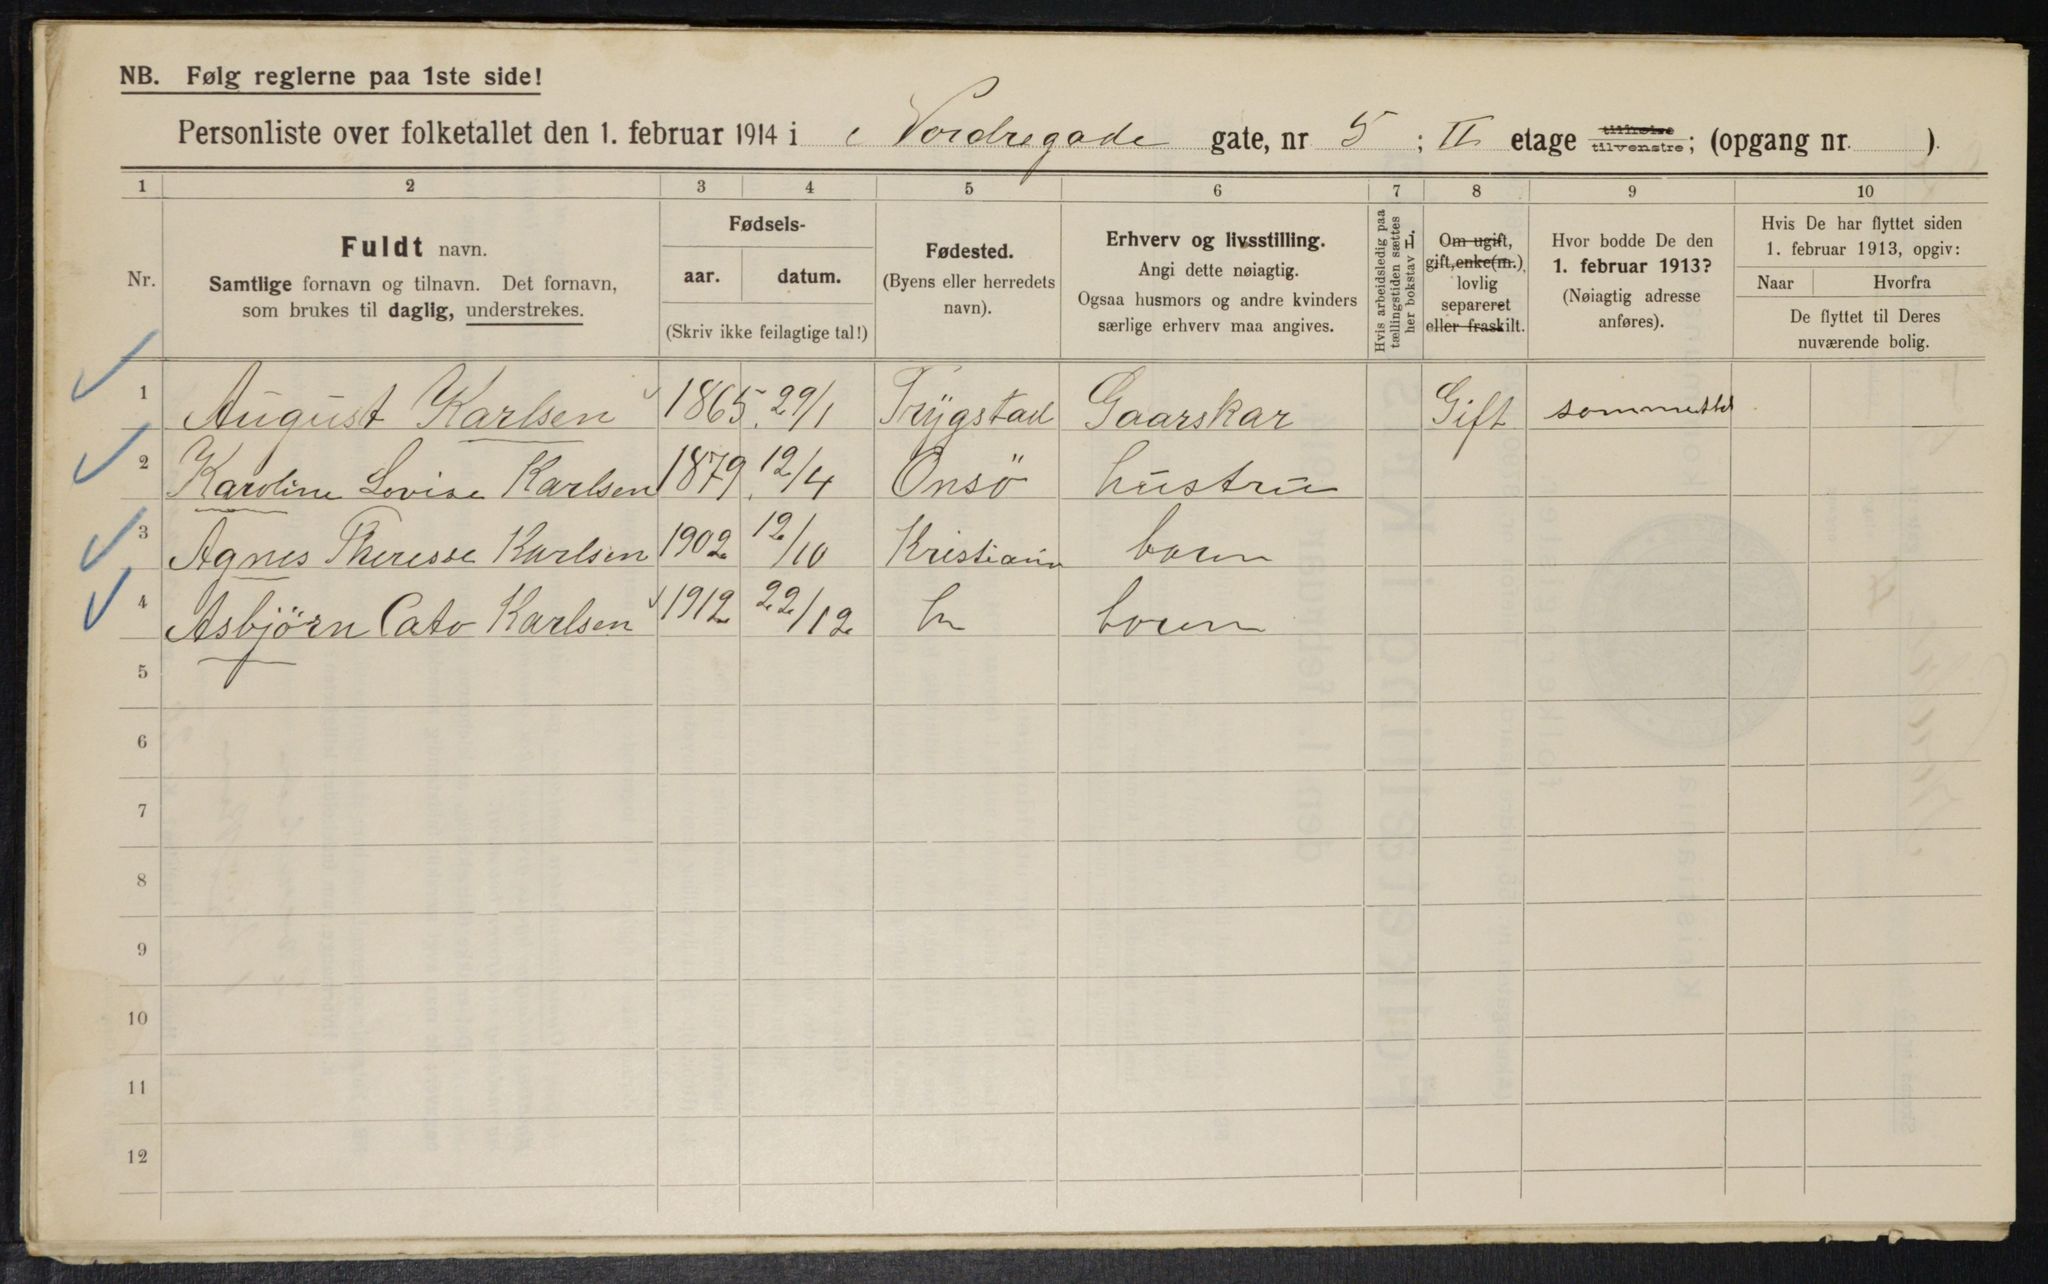 NB. Følg reglerne paa 1ste side!
Personliste over folketallet den 1. februar 1914 i Nordregade gate, nr 5 ; II etage tilhøire tilvenstre; (opgang nr. ).
1 2 3 4 5 6 7 8 9 10
Nr.
Fuldt navn.
Samtlige fornavn og tilnavn. Det fornavn,
som brukes til daglig, understrekes.
Fødsels-
aar. datum.
(Skriv ikke feilagtige tal!)
Fødested.
(Byens eller herredets
navn).
Erhverv og livsstilling.
Angi dette nøiagtig.
Ogsaa husmors og andre kvinders
særlige erhverv maa angives.
Hvis arbeidsledig paa
tællingstiden sættes
her bokstav L.
Om ugift,
gift, enke(m.),
lovlig
separeret
eller fraskilt.
Hvor bodde De den
1. februar 1913?
(Nøiagtig adresse
anføres).
Hvis De har flyttet siden
1. februar 1913, opgiv:
Naar Hvorfra
De flyttet til Deres
nuværende bolig.
1 August Karlsen 1865 29/1 Trygstad Gaarskar Gift
2 Karoline Lovise Karlsen 1879 12/4 Onsö hustru
3 Agnes Theresse Karlsen 1902 12/10 Kristiania barn
4 Asbjörn Cato Karlsen 1912 22/12 barn
5
6
7
8
9
10
11
12